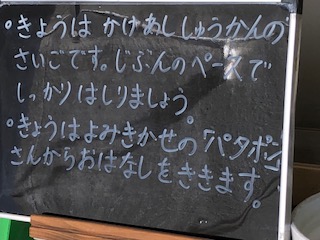 °きょうは かけあし しゅうかんの
さいごです。じぶんのペースで
しっかりはしりましょう
°きょうはよみきかせの「パタポン」
さんからおはなしをききます。